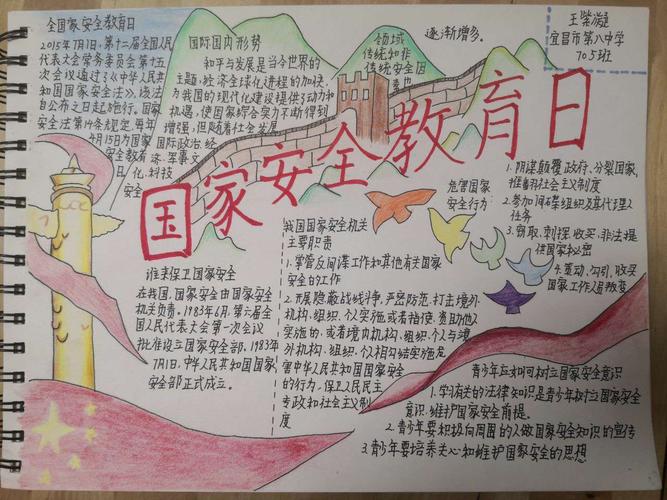 全国家安全教育日
2015年7月1日,第十二届全国人民
代表大会常务委员会第十五
次会议通过了《中华人民共
和国国家安全法》,该法
自公布之日起施行。国家
安全法第14条规定,每年
4月15日为国家
安全教育
日
国际国内形势
和平与发展是当今世界的
主题,经济全球化进程的加快,
为我国的现代化建设提供了动力和
机遇,使国家综合实力不断得到
增强,但随着社会发展
国际政治、经
济、军事、文
化、科技
安全
领域
传统和非
传统安全因
素也
逐渐增多。
王紫凝
宜昌市第八中学
705班
国家安全教育日
危害国家
安全行为:
1.阴谋颠覆政府、分裂国家,
推翻社会主义制度
2.参加间谍组织及其代理人
任务
3.窃取、刺探、收买、非法提
供国家秘密
4.策动、勾引、收买
国家工作人员叛变
谁来保卫国家安全
在我国,国家安全由国家安全
机关负责,1983年6月,第六届全
国人民代表大会第一次会议
批准设立国家安全部,1983年
7月1日,中华人民共和国国家
安全部正式成立。
我国国家安全机关
主要职责
1.掌管反间谍工作和其他有关国家
安全的工作
2.开展隐蔽战线斗争,严密防范、打击境外
机构、组织、个人实施或者指使、资助他人
实施的,或者境内机构、组织、个人与境
外机构、组织、个人相勾结实施危
害中华人民共和国国家安全
的行为,保卫人民民主
专政和社会主义制
度
青少年应如何树立国家安全意识
1.学习有关的法律知识是青少年树立国家安全
意识,维护国家安全前提。
2.青少年要积极向周围的人做国家安全知识的宣传
3.青少年要培养关心和维护国家安全的思想